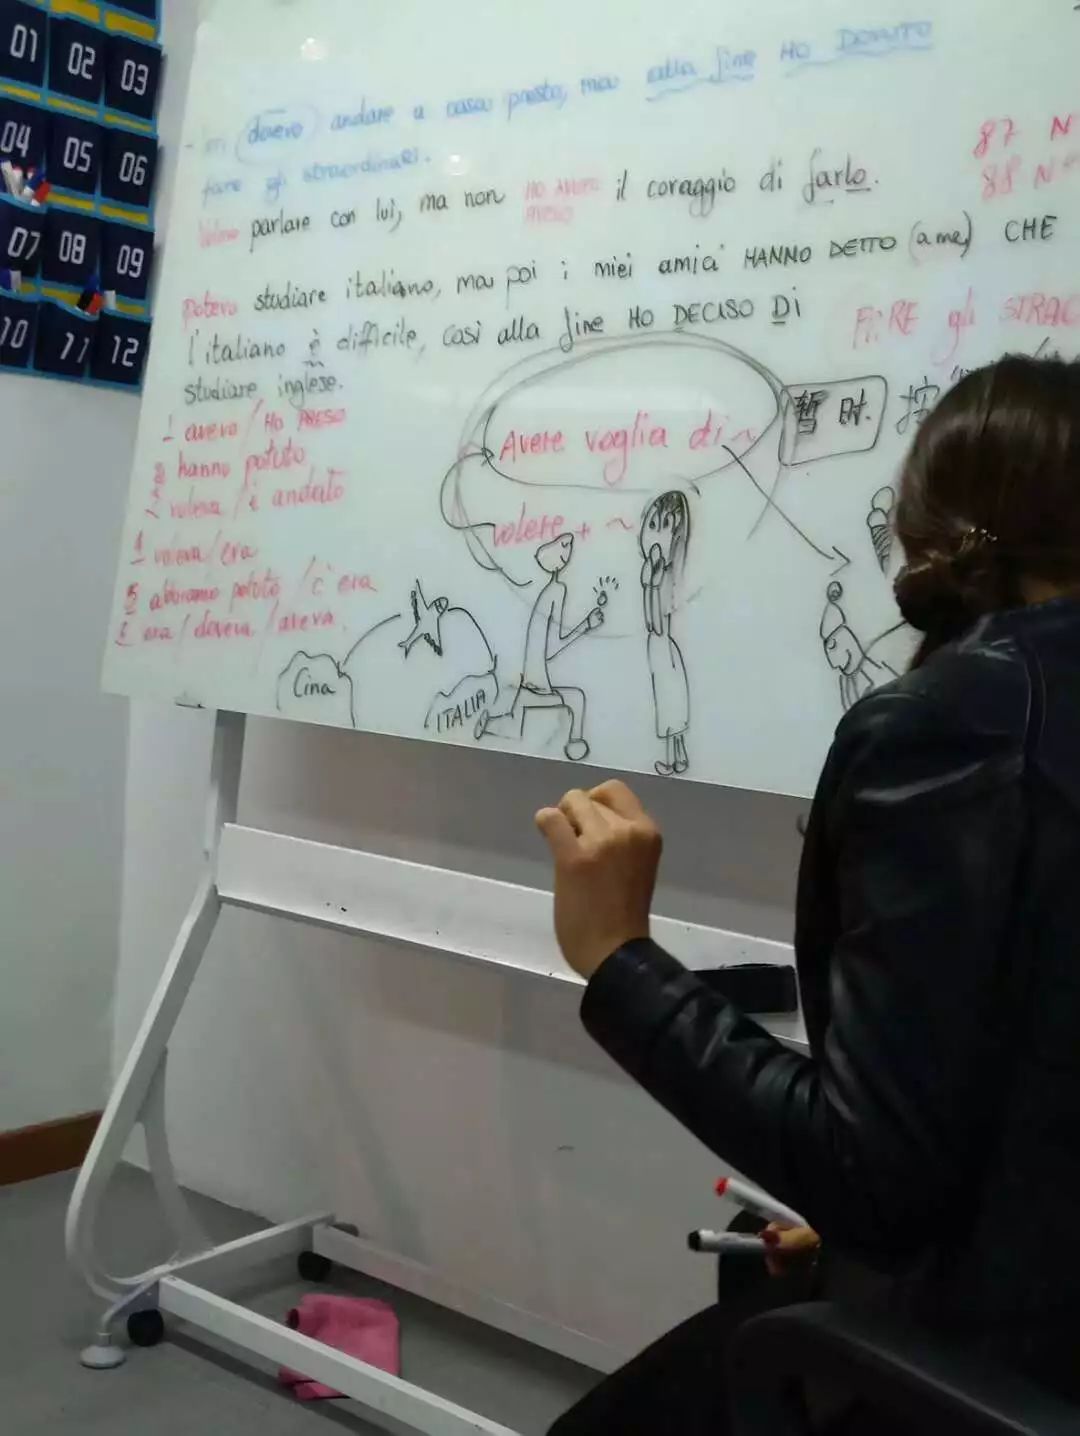 01 02 03
04 05 06
07 08 09
10 11 12
dovevo andare a casa presto, ma alla fine HO DOVUTO
fare gli straordinari.
parlare con lui, ma non HO il coraggio di farlo.
87 N
88 N
potevo studiare italiano, ma poi i miei amici HANNO DETTO (a me) CHE
l'italiano è difficile, così alla fine HO DECISO DI
studiare inglese.
gli STRAC
1 avevo / HO PRESO
2 hanno potuto
voleva / è andato
4 voleva / era
5 abbiamo potuto / c'era
6 era / doveva / aveva.
Avere voglia di ~
暂时.
按
volere + ~
Cina
ITALIA